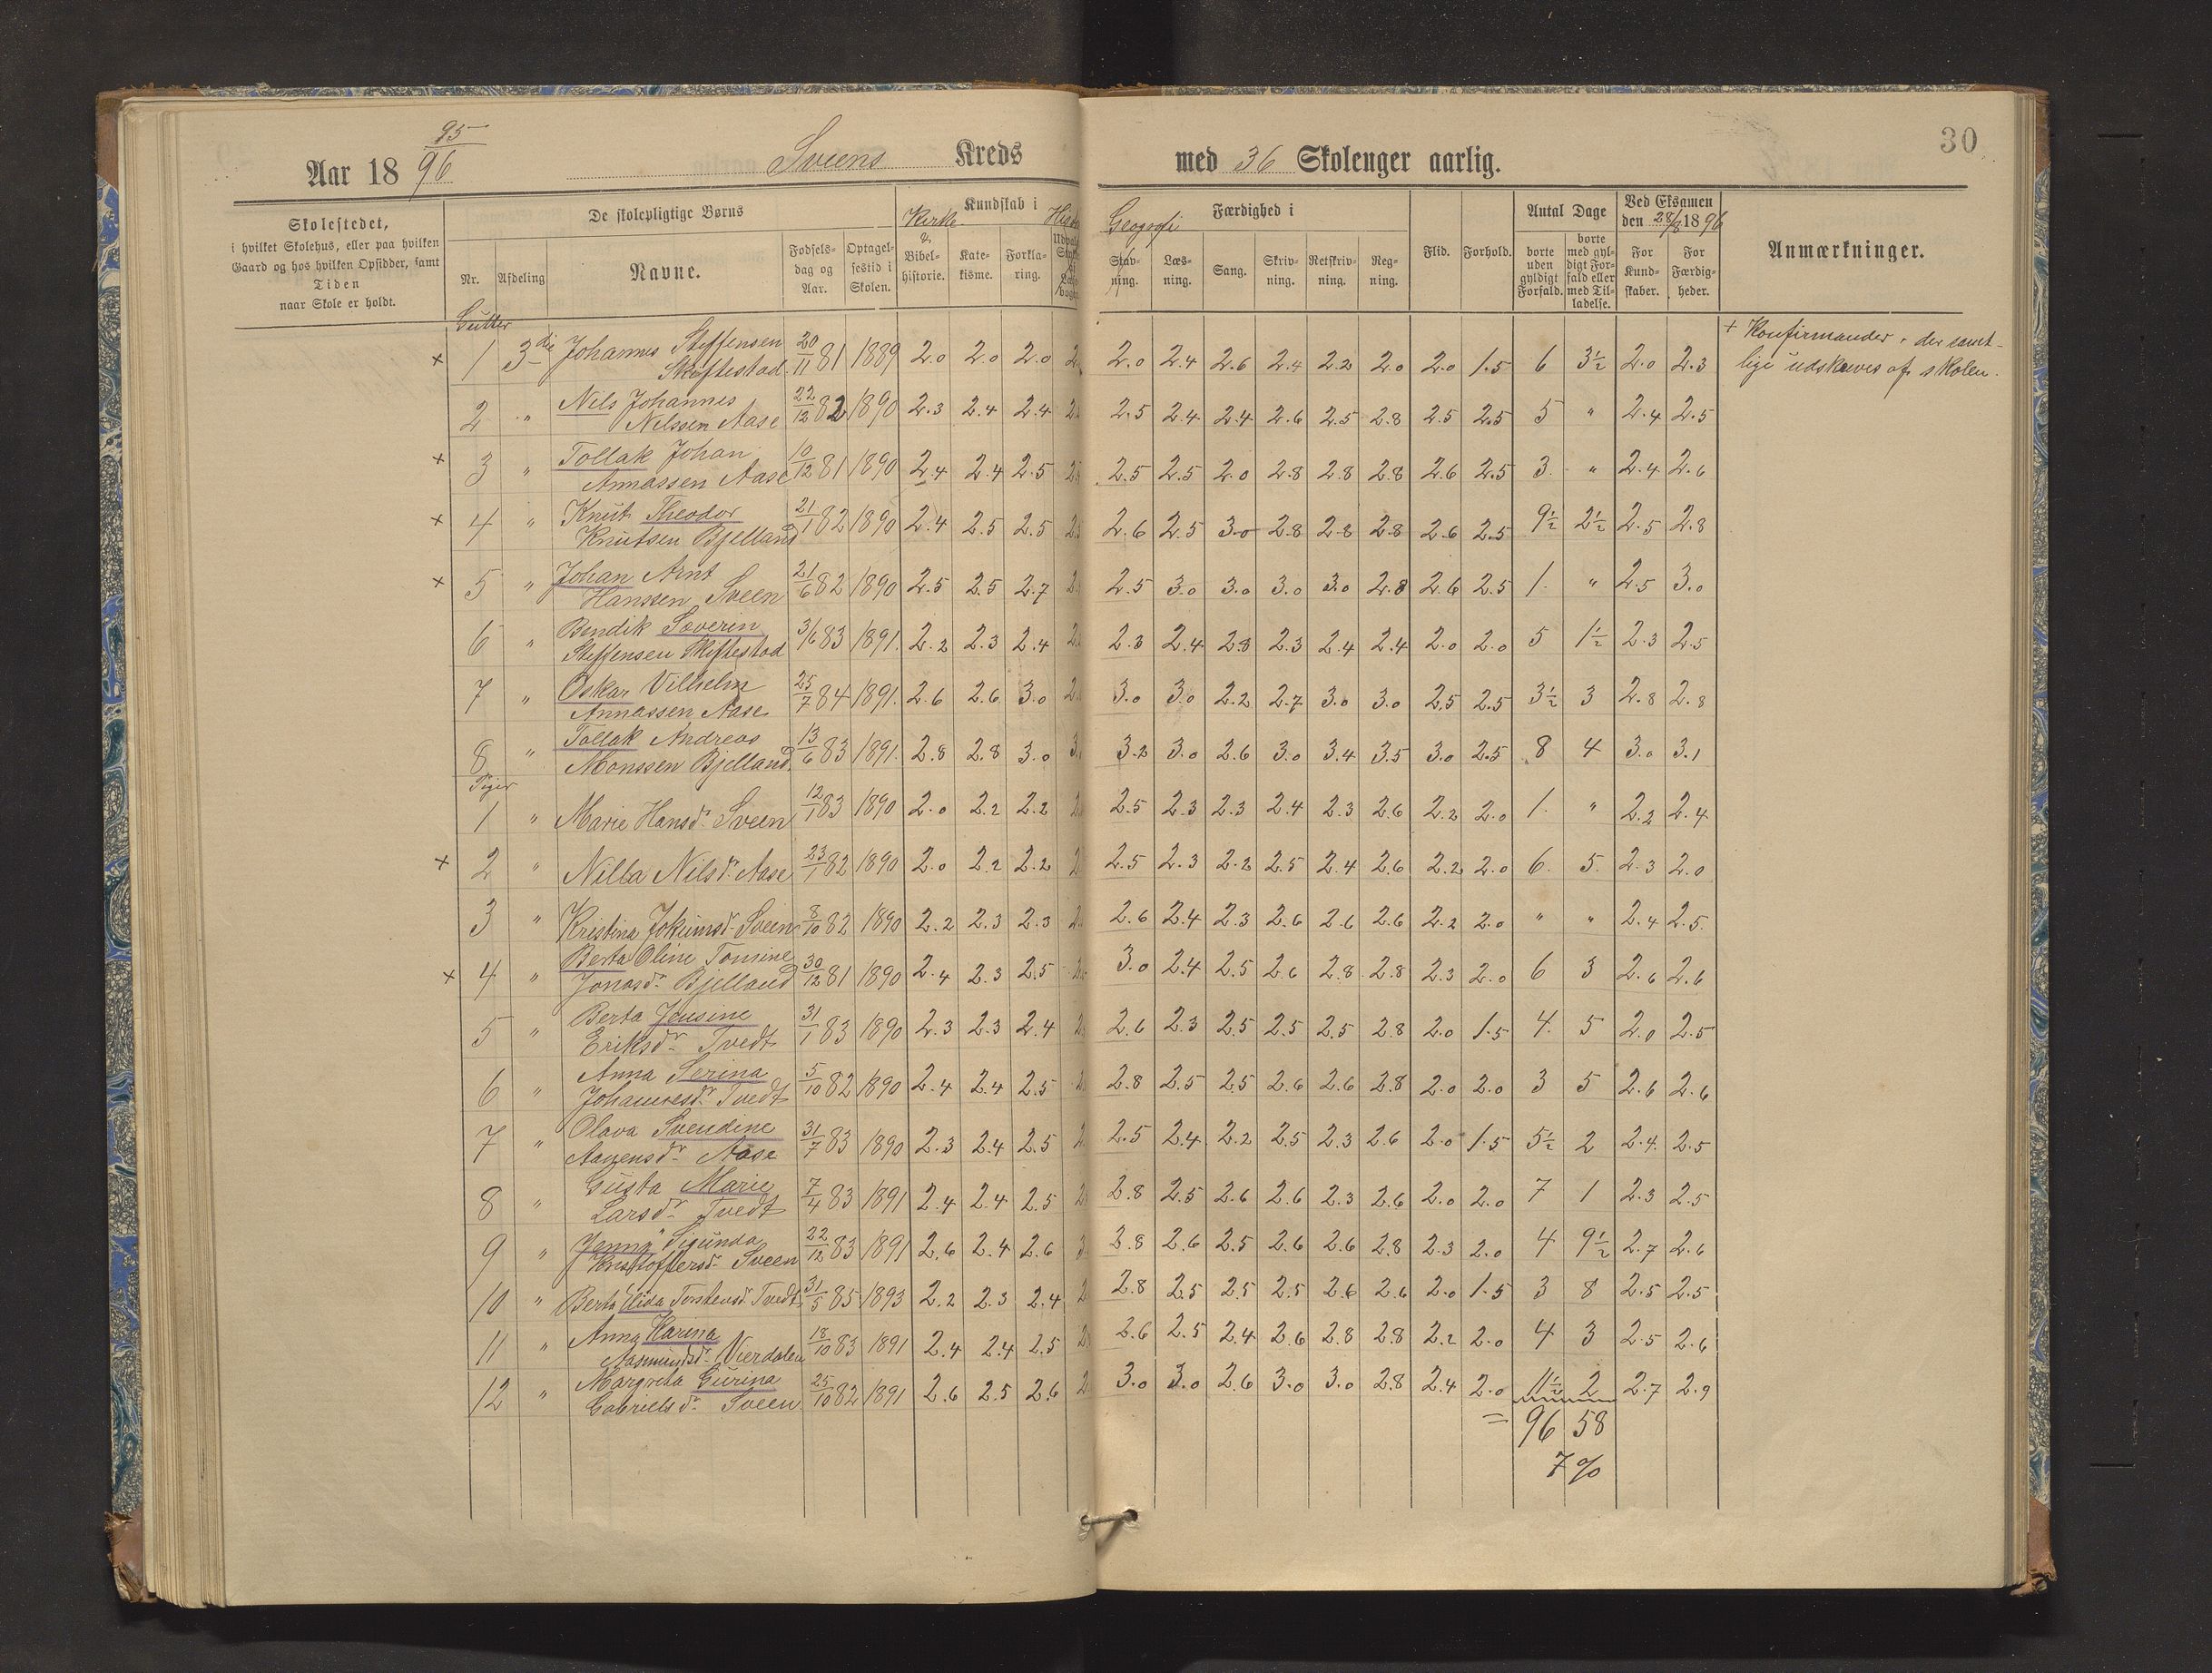 30
95
Aar 18 96 Sveens Kreds med 36 Skolenger aarlig.
Skolestedet,
i hvilket Skolehus, eller paa hvilken
Gaard og hos hvilken Opsidder, samt
Tiden
naar Skole er holdt.
De skolepligtige Børns
Nr. Afdeling Navne. Fødsels-dag og Aar. Optagel-sestid i Skolen.
Kundskab i
Kirke & Bibel-historie. Kate-kisme. Forkla-ring.
Færdighed i
Geografi Stav-ning. Læs-ning. Sang. Skriv-ning. Retskriv-ning. Reg-ning.
Flid. Forhold.
Antal Dage
borte uden gyldigt Forfald. borte med gyl-digt For-fald eller med Til-ladelse.
Ved Eksamen den 28/8 1896
For Kund-skaber. For Færdig-heder.
Anmærkninger.
+ Konfirmander, der samt-
lige udskrives af skolen.
Gutter
× 1 3die Johannes Steffensen Skiftestad 20/11 81 1889 2.0 2.0 2.0 2.0 2.4 2.6 2.4 2.2 2.0 2.0 1.5 6 3½ 2.0 2.3
2 " Nils Johannes Nilssen Aase 22/12 82 1890 2.3 2.4 2.4 2.5 2.4 2.4 2.6 2.5 2.8 2.5 2.5 5 " 2.4 2.5
× 3 " Tollak Johan Annassen Aase 10/12 81 1890 2.4 2.4 2.5 2.5 2.5 2.0 2.8 2.8 2.8 2.6 2.5 3. " 2.4 2.6
× 4 " Knut Theodor Knutsen Bjelland 21/1 82 1890 2.4 2.5 2.5 2.6 2.5 3.0 2.8 2.8 2.8 2.6 2.5 9½ 2½ 2.5 2.8
× 5 " Johan Arnt Hanssen Sveen 21/6 82 1890 2.5 2.5 2.7 2.5 3.0 3.0 3.0 3.0 2.8 2.6 2.5 1. " 2.5 3.0
6 " Bendik Severin Steffensen Skiftestad 3/6 83 1891. 2.2 2.3 2.4 2.3 2.4 2.3 2.3 2.4 2.4 2.0 2.0 5 1½ 2.3 2.5
7 " Oskar Vilhelm Annassen Aase 25/7 84 1891. 2.6 2.6 3.0 3.0 3.0 2.2 2.7 3.0 3.0 2.5 2.5 3½ 3 2.8 2.8
8 " Tollak Andreas Monssen Bjelland. 13/6 83 1891. 2.8 2.8 3.0 3.2 3.0 2.6 3.0 3.4 3.5 3.0 2.5 8 4 3.0 3.1
Piger
1 " Marie Hansdr Sveen 12/1 83 1890 2.0 2.2 2.2 2.5 2.3 2.3 2.4 2.3 2.6 2.2 2.0 1. " 2.2 2.4
× 2 " Nilla Nilsdr Aase 23/1 82 1890 2.0 2.2 2.2 2.5 2.3 2.2 2.5 2.4 2.6 2.2 2.0 6. 5. 2.3 2.0
3 " Kristina Jokumsdr Sveen 8/10 82 1890 2.2 2.3 2.3 2.6 2.4 2.3 2.6 2.6 2.6 2.2 2.0 " " 2.4 2.5.
× 4 " Berta Oline Tomine Jonasdr Bjelland 30/12 81 1890 2.4 2.3 2.5 3.0 2.4 2.5 2.6 2.8 2.8 2.3 2.0 6 3 2.6 2.6
5 " Berta Jensine Eriksdr Tvedt 31/1 83 1890 2.3 2.3 2.4 2.6 2.3 2.5 2.5 2.5 2.8 2.0 1.5 4. 5 2.0 2.5
6 " Anna Serina Johannesdr Tvedt 5/10 82 1890 2.4 2.4 2.5 2.8 2.5 2.5 2.6 2.6 2.8 2.0 2.0 3 5 2.6 2.6
7 " Olava Svendine Aanensdr Aase 31/7 83 1890 2.3 2.4 2.5 2.5 2.4 2.2 2.5 2.3 2.6 2.0 1.5 5½ 2 2.4. 2.5
8 " Gusta Marie Larsdr Tvedt 7/4 83 1891 2.4 2.4 2.5 2.8 2.5 2.6 2.6 2.3 2.6 2.0 2.0 7 1 2.3 2.5
9 " Jenny Sigunda Kristoffersdr Sveen 22/12 83 1891 2.6 2.4 2.6 2.8 2.6 2.5 2.6 2.6 2.8 2.3 2.0 4 9½ 2.7 2.6
10 " Berta Elida Torstensdr Tvedt 31/5 85 1893 2.2 2.3 2.4 2.8 2.5 2.5 2.5 2.6 2.6 2.0 1.5 3 8 2.5 2.5
11 " Anna Karina Aasmundsdr Vierdalen 18/10 83 1891 2.4 2.4 2.5 2.6 2.5 2.4 2.6 2.8 2.8 2.2 2.0 4 3 2.5 2.6
12 " Margreta Gurina Gabrielsdr Sveen 25/10 82 1891 2.6 2.5 2.6 3.0 3.0 2.6 3.0 3.0 2.8 2.4 2.0 11½ 2 2.7 2.9
= 96 58
7 %